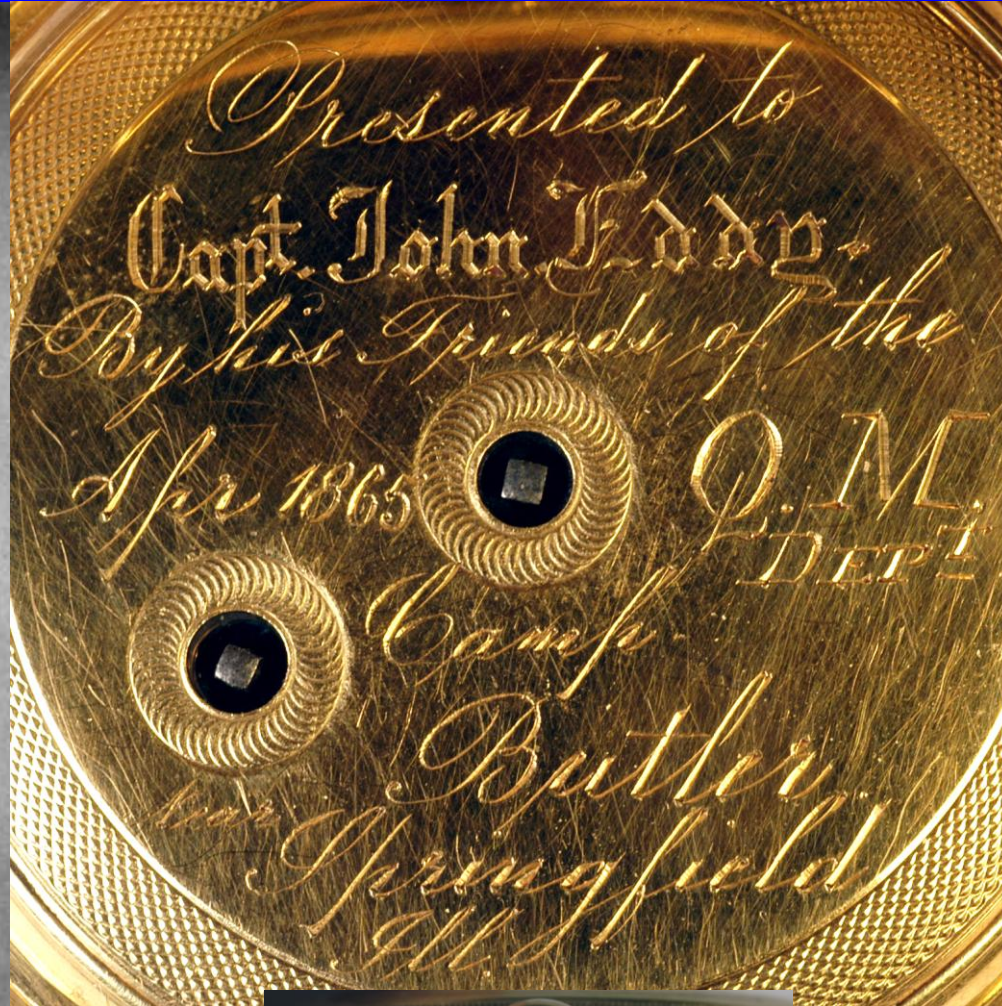 Presented to
Capt. John Eddy.
By his Friends of the
Apr 1865 Q. M.
DEPT
Camp
Butler,
near Springfield,
Ill.